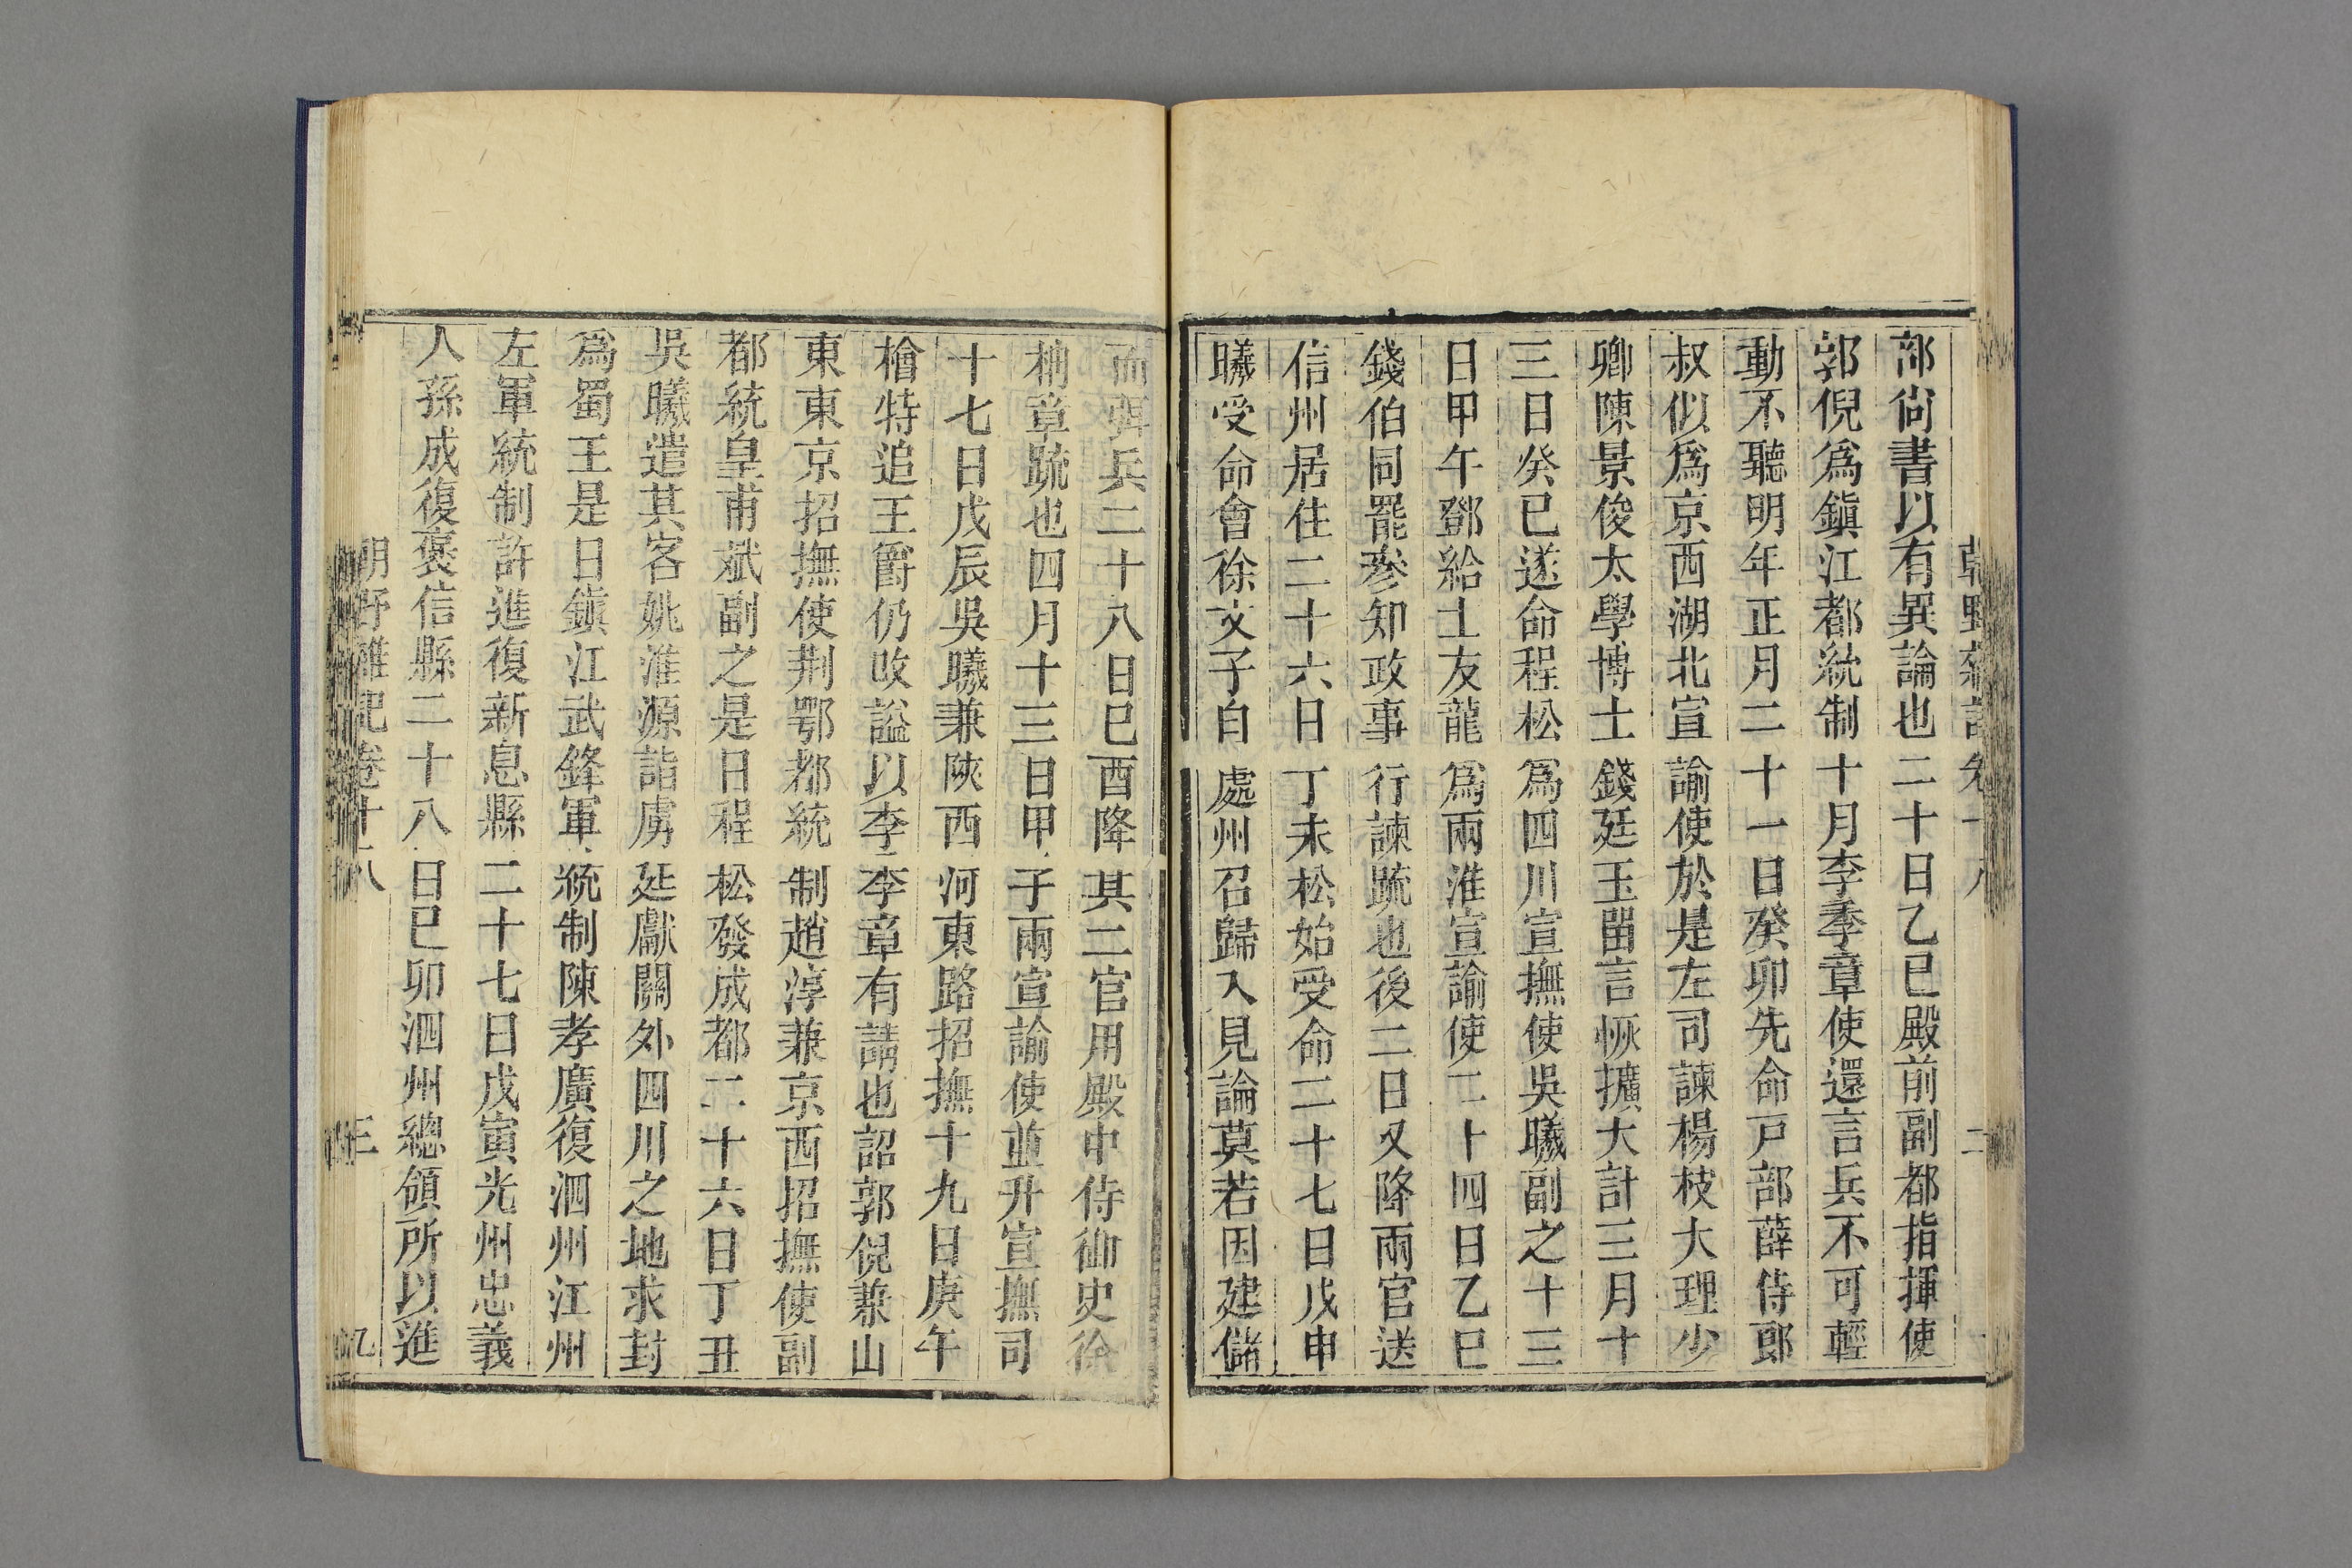 部尚書以有異論也二十日乙巳殿前副都指揮使
郭倪爲鎮江都統制十月李季章使還言兵不可輕
動不聽明年正月二十一日癸卯先命戸部薛侍郎
叔似爲京西湖北宣諭使於是左司諫楊枝大理少
卿陳景俊太學博士錢廷玉畱言恢擴大計三月十
三日癸巳遂命程松爲四川宣撫使吳曦副之十三
日甲午鄧給士友龍爲兩淮宣諭使二十四日乙巳
錢伯同罷參知政事行諫疏也後二日又降兩官送
信州居住二十六日丁未松始受命二十七日戊申
曦受命會徐文子自處州召歸入見論莫若因建儲
而弭兵二十八日巳酉降其二官用殿中侍御史徐
柟章疏也四月十三日甲子兩宣諭使並升宣撫司
十七日戊辰吳曦兼陝西河東路招撫十九日庚午
檜特追王爵仍改謚以李季章有請也詔郭倪兼山
東東京招撫使荆鄂都統制趙淳兼京西招撫使副
都統皇甫斌副之是日程松發成都二十六日丁丑
吳曦遣其客姚淮源詣虜廷獻關外四川之地求封
爲蜀王是日鎮江武鋒軍統制陳孝廣復泗州江州
左軍統制許進復新息縣二十七日戊寅光州忠義
人孫成復褒信縣二十八日巳卯泗州總領所以進
朝野雜記卷十八
三